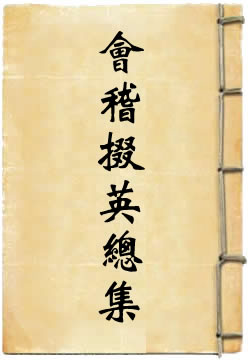 會稽掇英總集